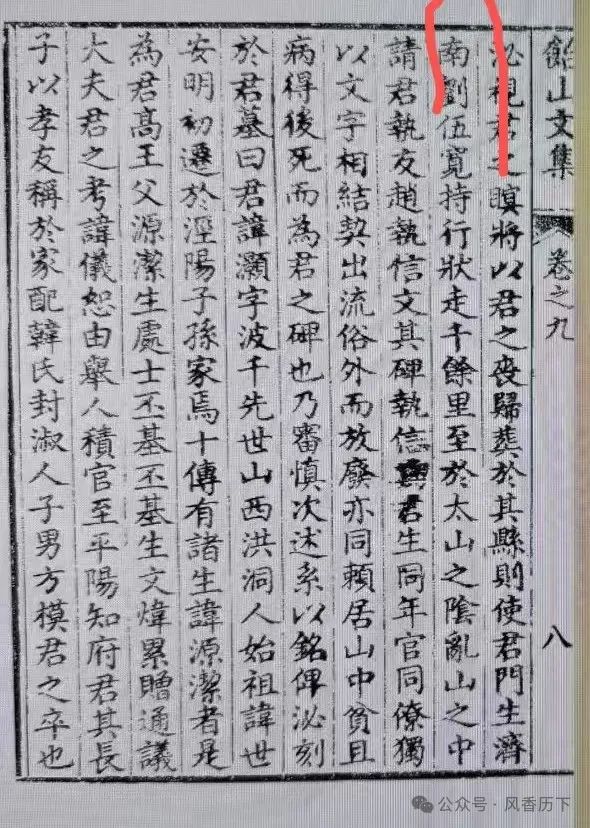 飴山文集 卷之九 八
泌視君之瞑將以君之喪歸葬於其縣則使君門生濟
南劉伍寬持行狀走千餘里至於太山之陰亂山之中
請君執友趙執信文其碑執信與君生同年官同僚獨
以文字相結契出流俗外而放廢亦同頼居山中貧且
病得後死而為君之碑也乃審慎次述系以銘俾泌刻
於君墓曰君諱灝字波千先世山西洪洞人始祖諱世
安明初遷於涇陽子孫家焉十傳有諸生諱源潔者是
為君髙王父源潔生處士丕基丕基生文煒累贈通議
大夫君之考諱儀恕由舉人積官至平陽知府君其長
子以孝友稱於家配韓氏封淑人子男方模君之卒也
公众号·风香历下